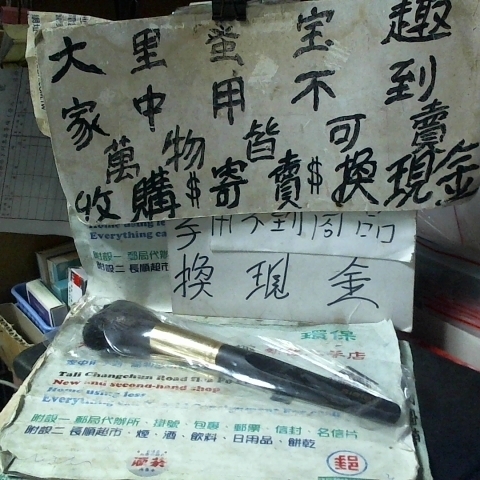 大里蚤宝趣
家中用不到
萬物皆可賣
收購$寄賣$換現金
Home using le
Everything ca
附設一 郵局代辦
附設二 長順超市
用不到
換現金
環保
Tali Changchun Road
New and second-hand shop
Home using less
Everything
附設一 郵局代辦所、掛號、包裹、郵票、信封、名信片
附設二 長順超市、煙、酒、飲料、日用品、餅乾